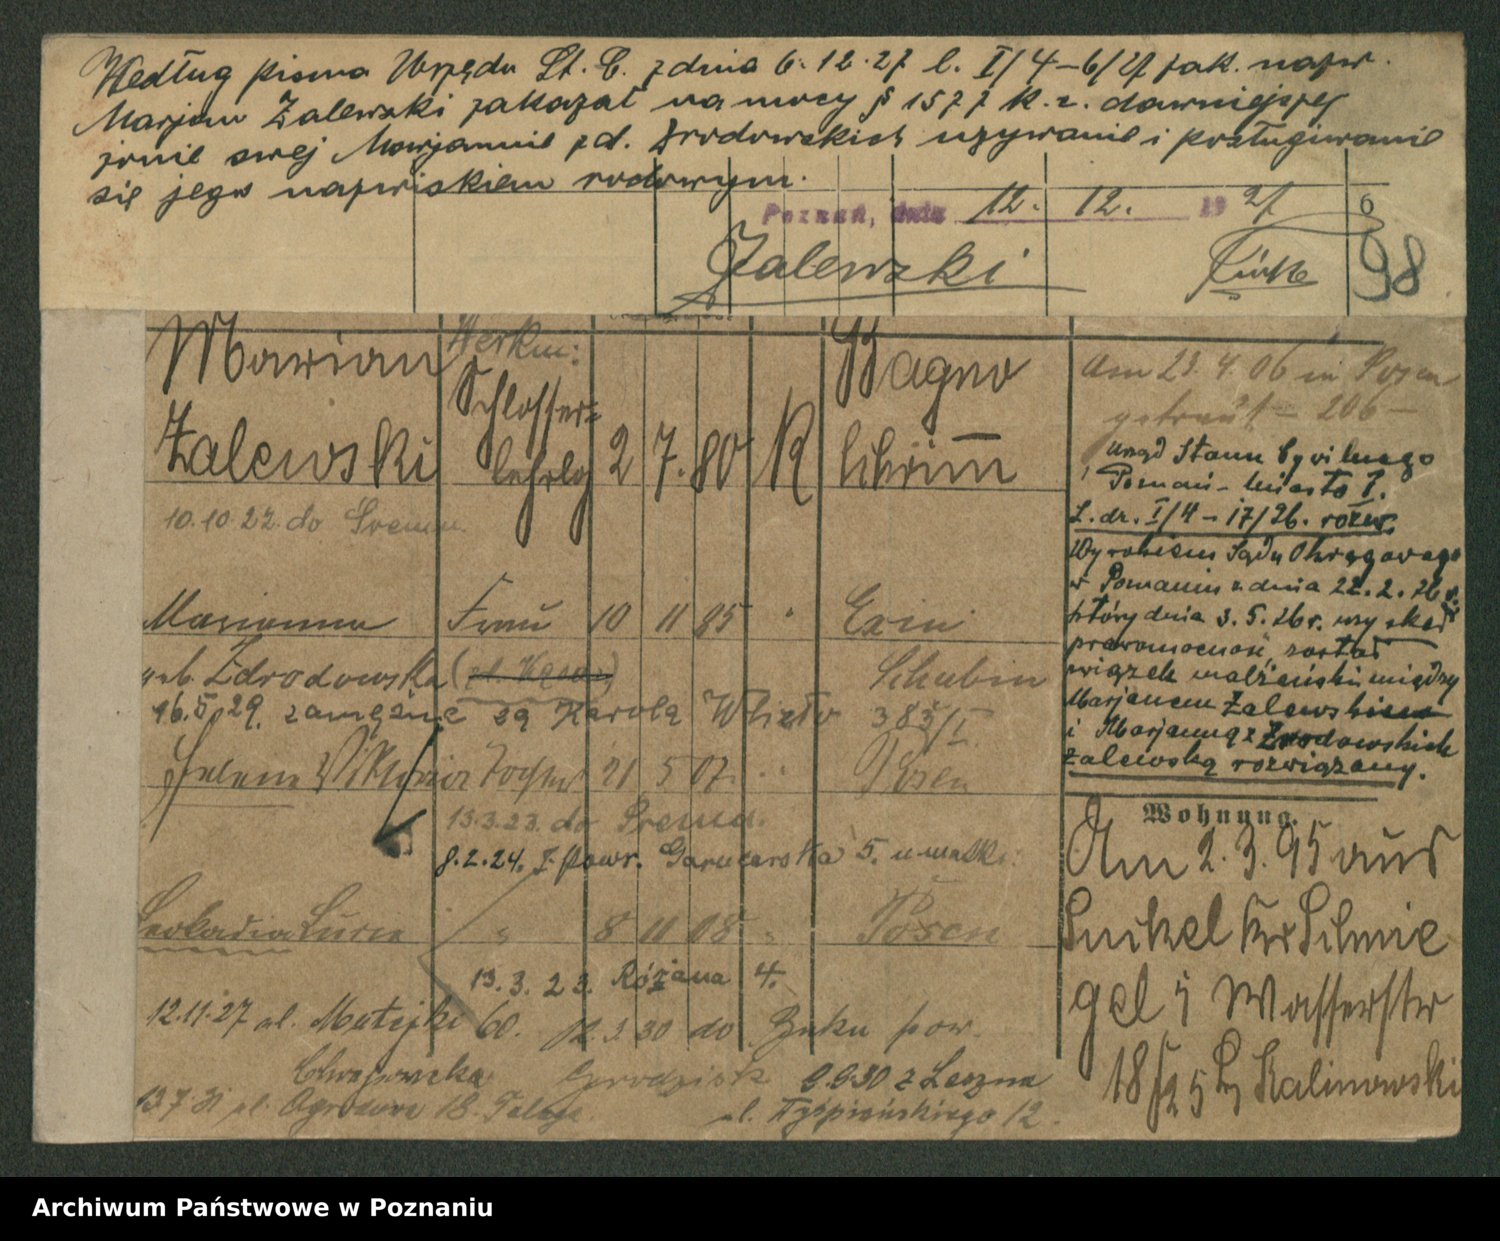 Według pisma Urzędu St. C. z dnia 6.12.27 l. I/4-6/27 zak. napr.
Marjan Zalewski zakazał na mocy § 1577 k.c. dawniejszej
żonie swej Marjannie z d. Zrodowskich używanie i posługiwanie
się jego nazwiskiem rodowym.
Poznań, dnia 12. 12. 19 27
6
Zalewski
98
Marian
Zalewski
Werkm:
Schlosser=
lehrlg
2 7. 80 K
Bagno
Schrimm
Am 23.4.06 in Posen
getraut = 206 -
Urząd Stanu Cywilnego
Poznań - miasto I.
L. dz. I/4 - 17/26. rozw.
Wyrokiem Sądu Okręgowego
w Poznaniu z dnia 22.2.26 r.
który dnia 3.5.26 r. uzyskał
prawomocność, został
związek małżeński między
Marjanem Zalewskim
i Marjanną z Zrodowskich
Zalewską rozwiązany.
10.10.22. do Śremu.
Marianna Frau 10 11 85 " Exin
geb. Zdrodowska Schubin
16.5.29. zamężna za Karola 385/I
Helene Viktoria Tochter 21 5 07. " Posen
13.3.23. do Śremu.
8.2.24. z powr. Garncarska 5. u matki.
Leokadia Lucia " 8 11 08 " Posen
13.3.23. Różana 4.
12.11.27 ul. Matejki 60. 12.3.30 do Buku pow.
Grodzisk 9.9.30 z Leszna
13.7.31 ul. Ogrodowa 18. ul. 12.
Wohnung.
Am 2.3.95 aus
Krs Schmie
gel i Wasserstr
18/25 Kalinowski
Archiwum Państwowe w Poznaniu